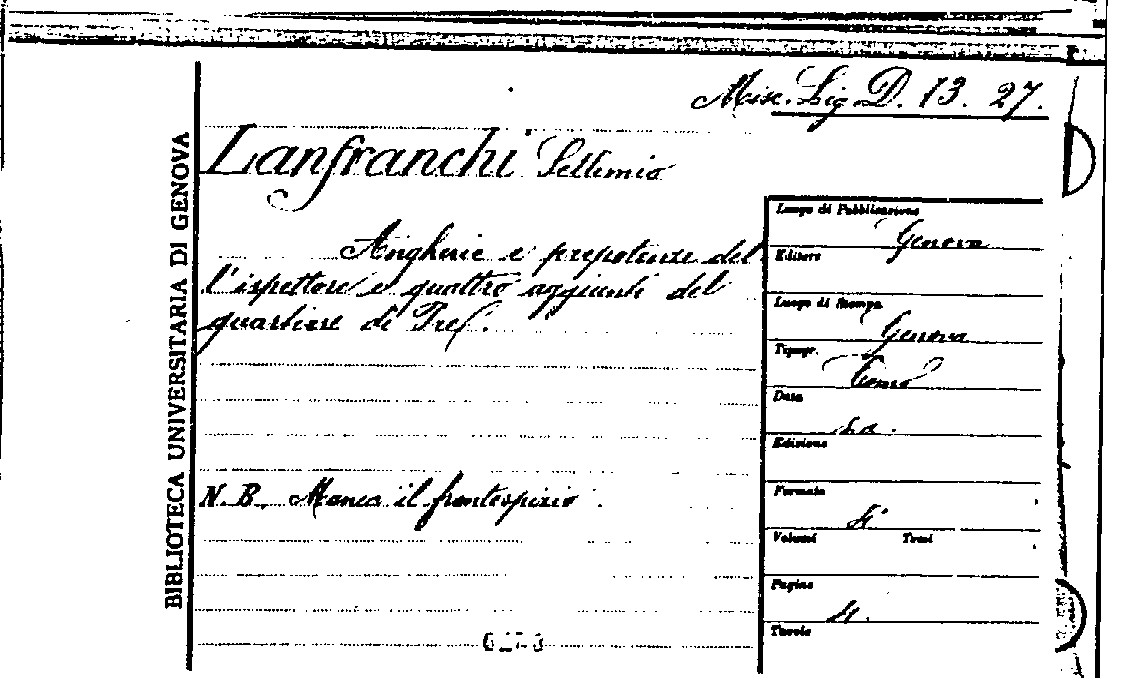 Misc. Lig. D. 13. 27.
BIBLIOTECA UNIVERSITARIA DI GENOVA
Lanfranchi Settimio
Angherie e prepotenze del
l'ispettore e quattro aggiunti del
quartiere di Tref.
N. B. Manca il frontespizio.
Luogo di Pubblicazione
Genova
Editore
Luogo di Stampa
Genova
Tipogr.
Data
s.a.
Edizione
Formato
4°
Volumi Tomi
Pagine
4.
Tavole